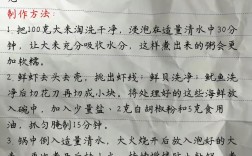 制作方法：
1.把100克大米淘洗干净，浸泡在适量清水中30分
钟，让大米充分吸收水分，这样煮出来的粥会更
加软糯。
2.鲜虾去头去壳，挑出虾线；鲜贝洗净；鱿鱼洗
净后切花刀再切成小块。将处理好的这些海鲜放
入碗中，加入少量盐、2克白胡椒粉和5克食用
油，抓匀腌制15分钟。
3.锅中倒入适量清水，大火烧开后放入泡好的大